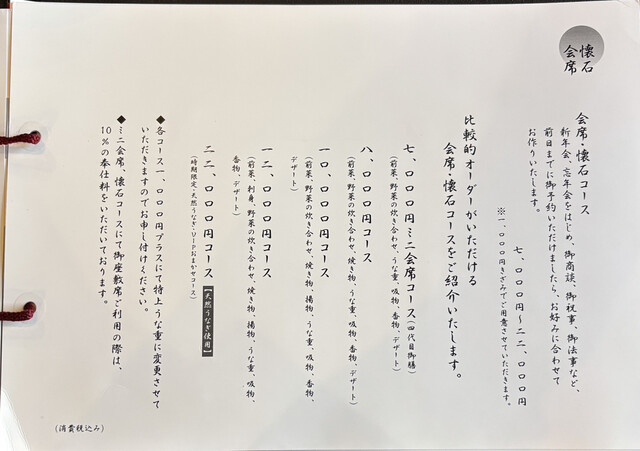 懐石
会席
会席・懐石コース
新年会、忘年会をはじめ、御商談、御祝事、御法事など、
前日までに御予約いただけましたら、お好みに合わせて
お作りいたします。
七、〇〇〇円〜二二、〇〇〇円
※一、〇〇〇円きざみでご用意させていただきます。
比較的オーダーがいただける
会席・懐石コースをご紹介いたします。
七、〇〇〇円ミニ会席コース(四代目御膳)
(前菜、野菜の炊き合わせ、うな重、吸物、香物、デザート)
八、〇〇〇円コース
(前菜、野菜の炊き合わせ、焼き物、うな重、吸物、香物、デザート)
一〇、〇〇〇円コース
(前菜、野菜の炊き合わせ、焼き物、揚物、うな重、吸物、香物、
デザート)
一二、〇〇〇円コース
(前菜、刺身、野菜の炊き合わせ、焼き物、揚物、うな重、吸物、
香物、デザート)
二二、〇〇〇円コース【天然うなぎ使用】
(時期限定・天然うなぎ・VIPおまかせコース)
◆各コース一、〇〇〇円プラスにて特上うな重に変更させて
いただきますのでお申し付けください。
◆ミニ会席、懐石コースにて御座敷席ご利用の際は、
10%の奉仕料をいただいております。
(消費税込み)